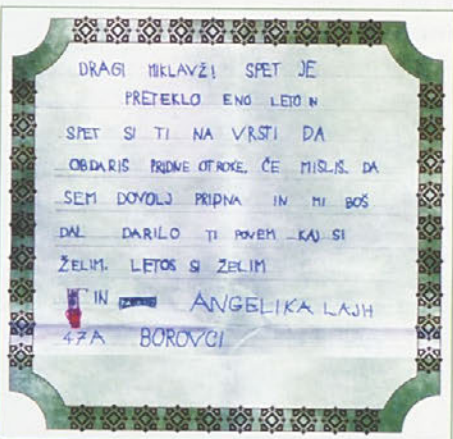 DRAGI MIKLAVŽ! SPET JE
PRETEKLO ENO LETO IN
SPET SI TI NA VRSTI DA
OBDARIŠ PRIDNE OTROKE. ČE MISLIŠ DA
SEM DOVOLJ PRIDNA IN MI BOŠ
DAL DARILO TI POVEM KAJ SI
ŽELIM. LETOS SI ŽELIM
IN ANGELIKA LAJH
47A BOROVCI